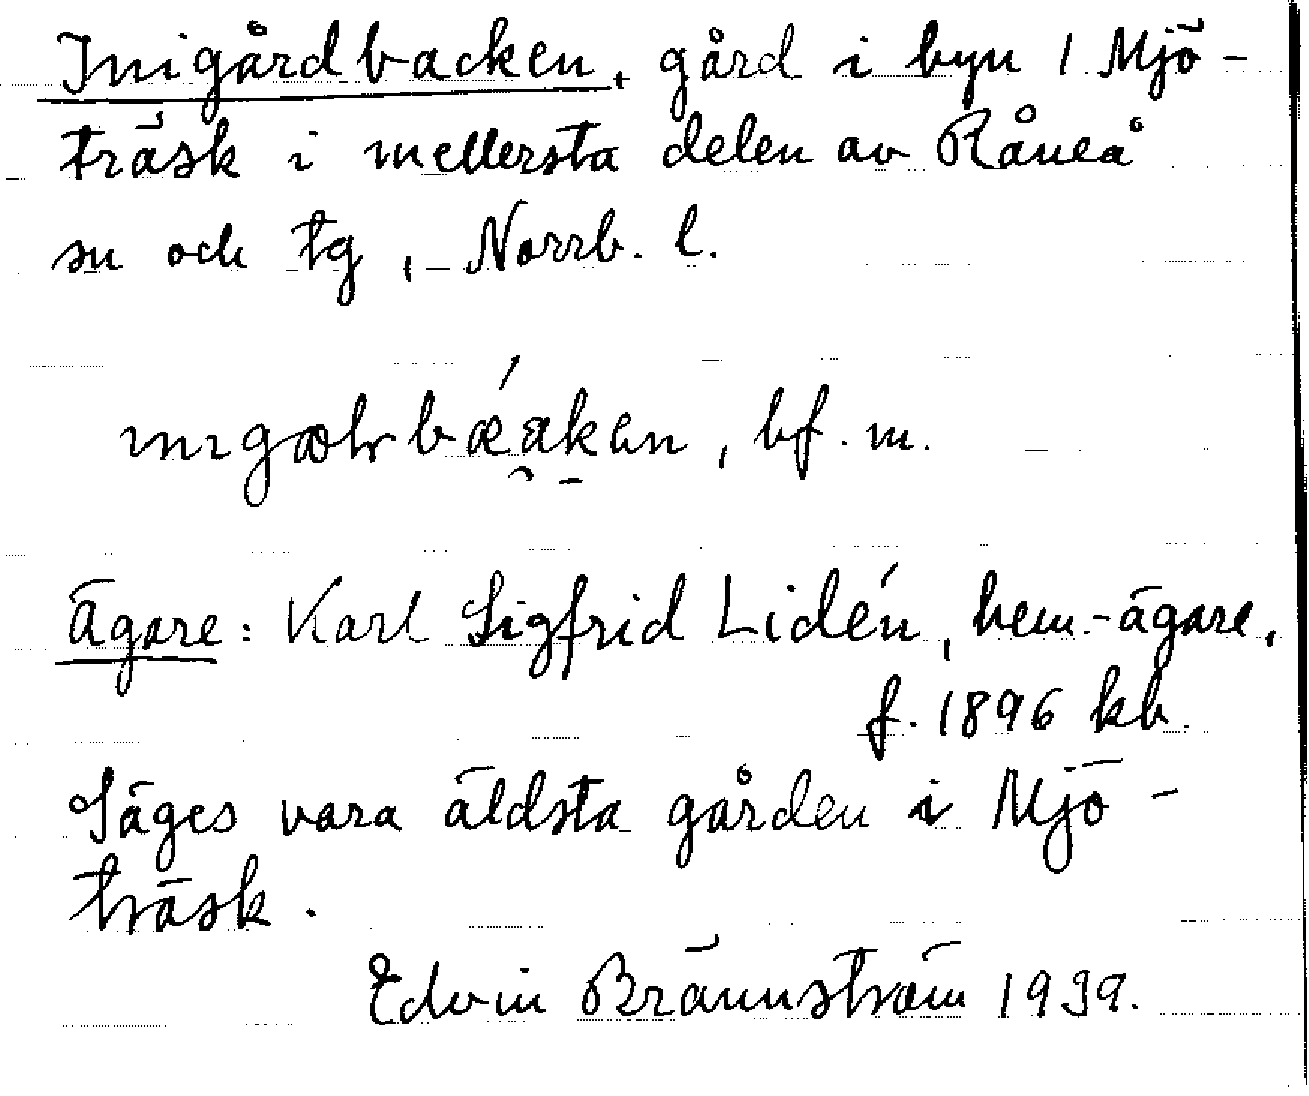 Inigårdbacken, gård i byn 1 Mjö-
träsk i mellersta delen av Råneå
sn och tg, Norrb. l.
bf. m.
Ägare: Karl Sigfrid Lidén, hem.-ägare,
f. 1896 kb.
Säges vara äldsta gården i Mjö-
träsk.
Edvin Brännström 1939.